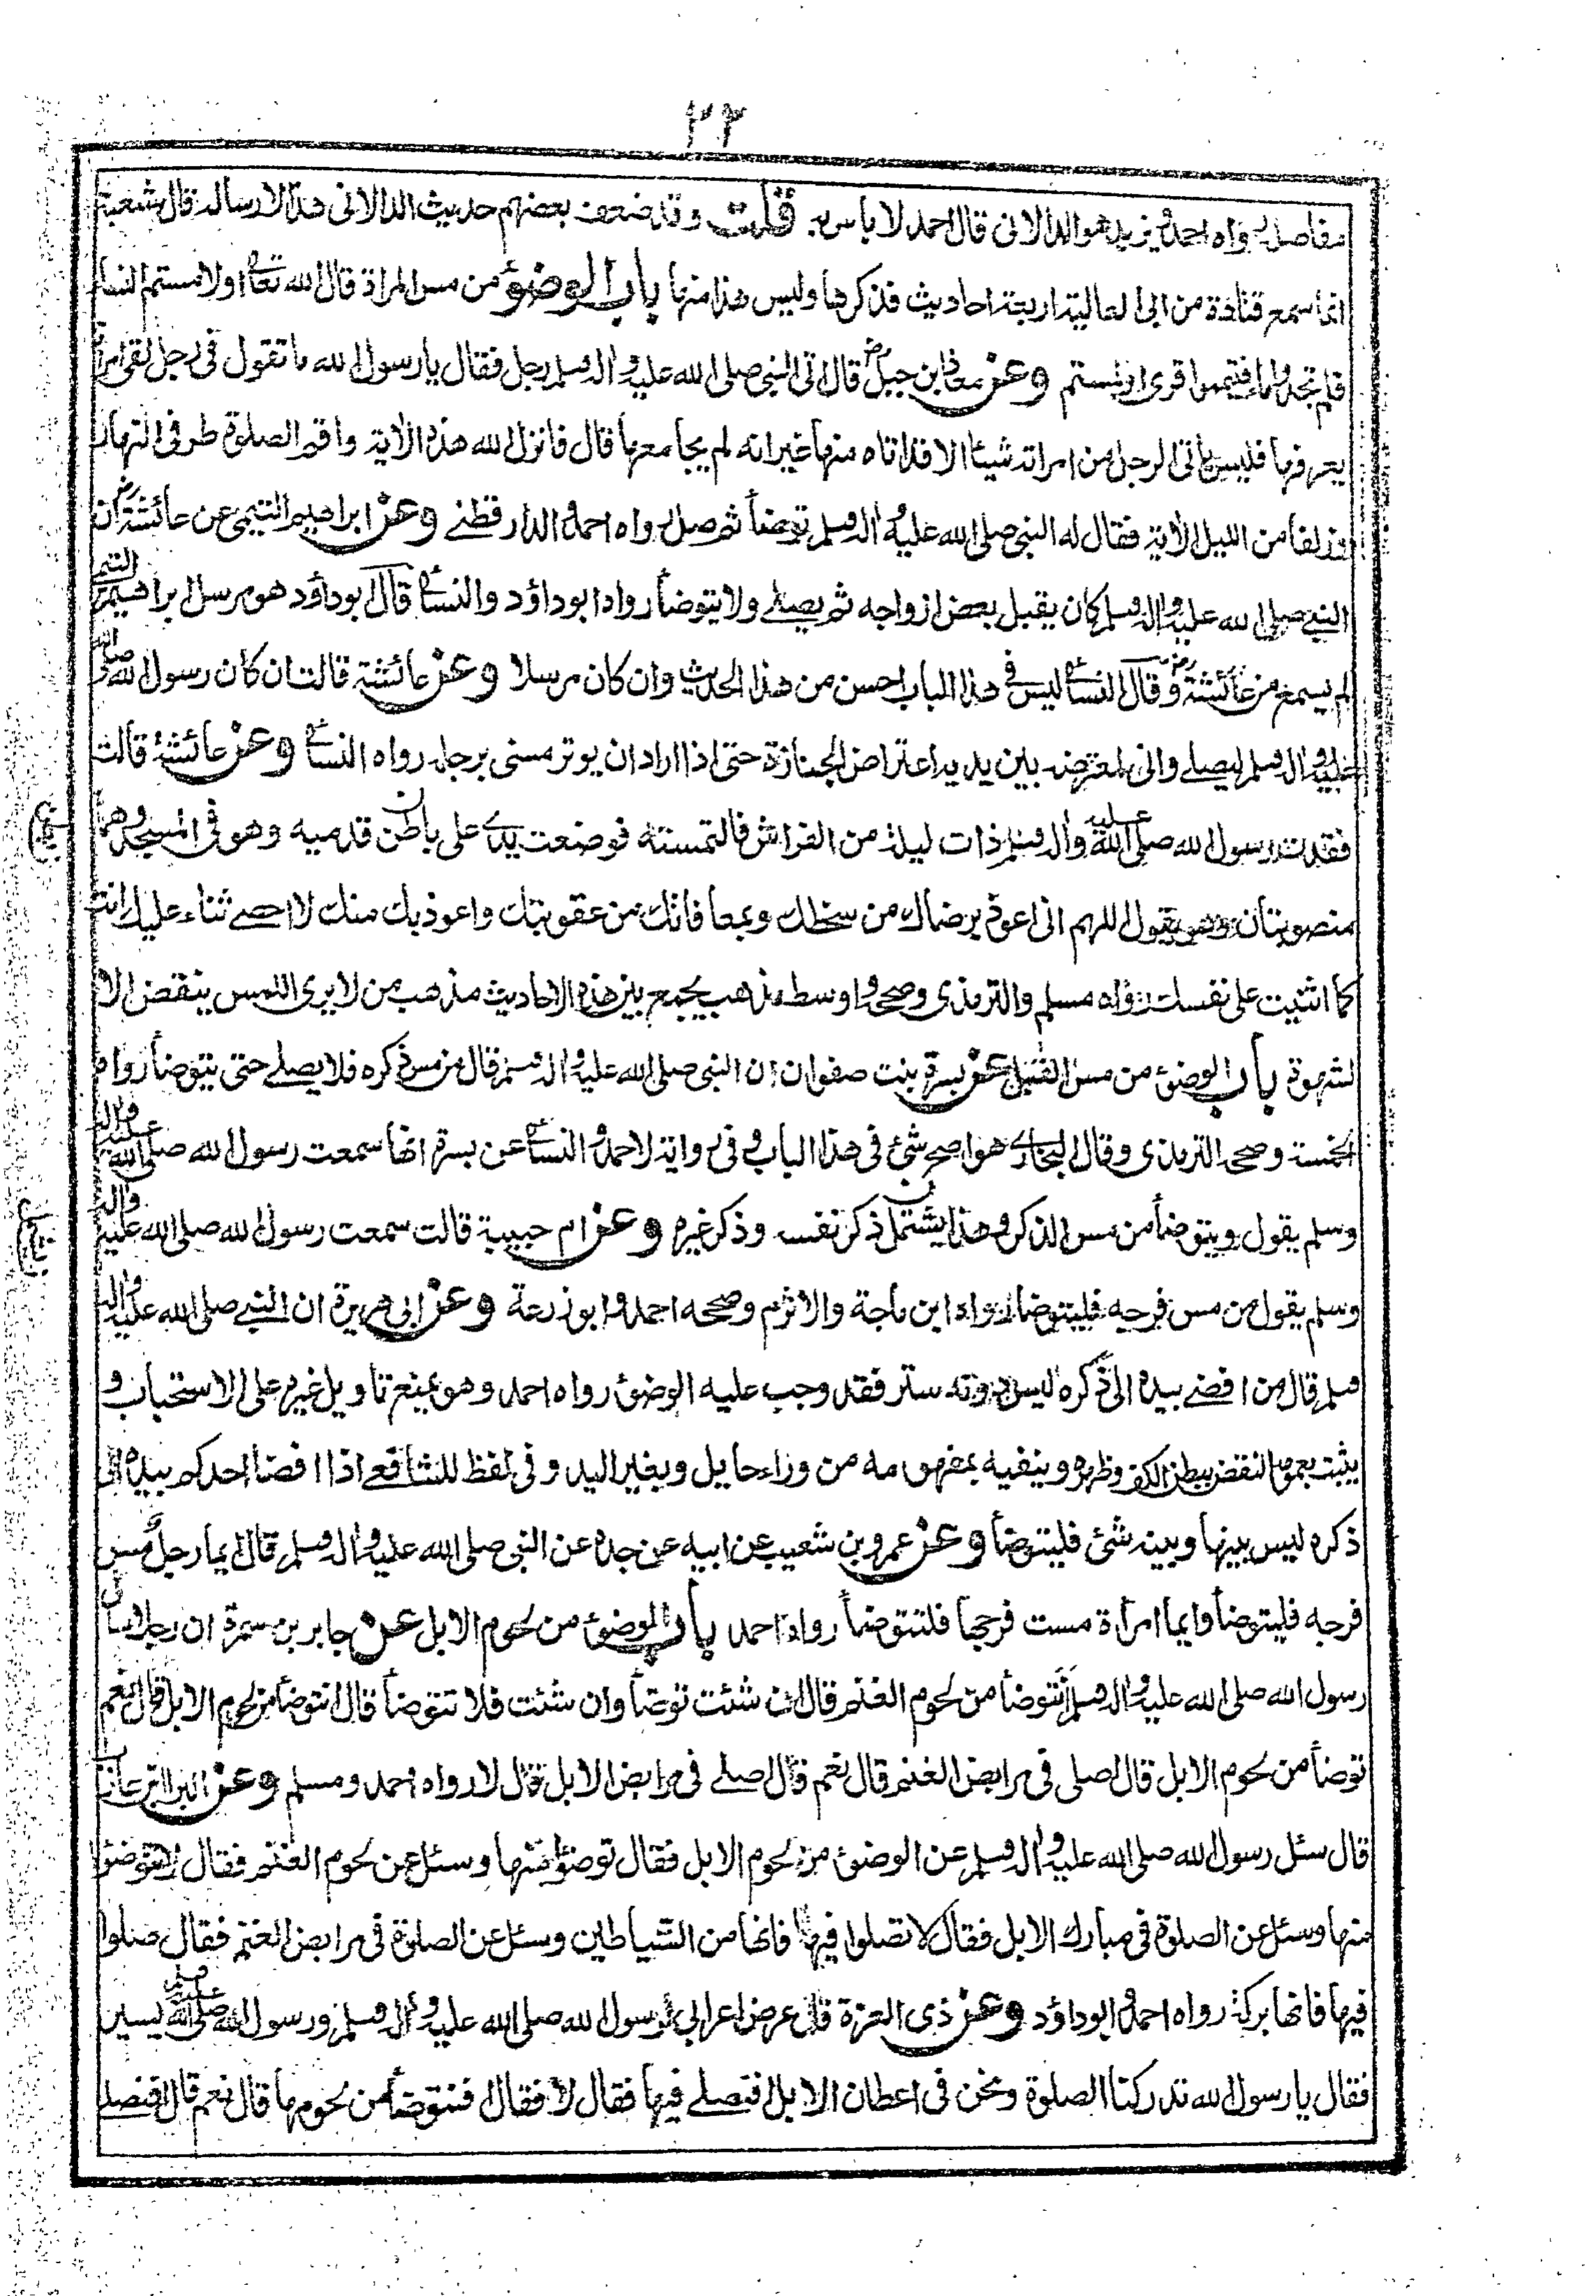 ٣٣
مفاصله رواه احمد ويزيد هو الدالانى قال احمد لا باس به قلت وقد ضعف بعضهم حديث الدالانى هذا لارساله قال شعبة
انما سمع قتادة من ابى العالية اربعة احاديث فذكرها وليس هذا منها باب الوضوء من مس المراة قال الله تعالى او لامستم النساء
فلم تجدوا ماء فتيمموا قرى او لمستم وعن معاذ ابن جبل رض قال اتى النبى صلى الله عليه واله وسلم رجل فقال يا رسول الله ما تقول فى رجل لقى امراة
يعرفها فليس ياتى الرجل من امراته شيئا الا قد اتاه منها غير انه لم يجامعها قال فانزل الله هذه الاية واقم الصلوة طرفى النهار
وزلفا من الليل الاية فقال له النبى صلى الله عليه واله وسلم توضأ ثم صل رواه احمد والدارقطنے وعن ابراهيم التيمى عن عائشة رض ان
النبے صلى الله عليه واله وسلم كان يقبل بعض ازواجه ثم يصلے ولا يتوضأ رواه ابو داؤد والنسائے قال ابو داؤد هو مرسل ابراهيم التيمے
لم يسمع من عائشة رض وقال النسائے ليس فى هذا الباب احسن من هذا الحديث وان كان مرسلا وعن عائشة قالت ان كان رسول الله صلى الله
عليه واله وسلم ليصلے وانى لمعترضه بين يديه اعتراض الجنازة حتى اذا اراد ان يوتر مسنى برجله رواه النسائے وعن عائشة قالت
فقدت رسول الله صلى الله عليه واله وسلم ذات ليلة من الفراش فالتمسته فوضعت يدے على باطن قدميه وهو فى المسجد وهما
منصوبتان وهو يقول اللهم انى اعوذ برضاك من سخطك وبمعافاتك من عقوبتك واعوذ بك منك لا احصے ثناء عليك انت
كما اثنيت على نفسك رواه مسلم والترمذى وصححه واوسط مذهب يجمع بين هذه الاحاديث مذهب من لا يرى اللمس ينقض الا
لشهوة باب الوضوء من مس القبل عن بسرة بنت صفوان ان النبى صلى الله عليه واله وسلم قال من مس ذكره فلا يصلے حتى يتوضأ رواه
الخمسة وصححه الترمذى وقال البخارے هو اصح شئ فى هذا الباب وفى رواية لاحمد والنسائے عن بسرة انها سمعت رسول الله صلى الله عليه واله
وسلم يقول ويتوضأ من مس الذكر وهذا يشتمل ذكر نفسه وذكر غيره وعن ام حبيبة قالت سمعت رسول الله صلى الله عليه واله
وسلم يقول من مس فرجه فليتوضأ رواه ابن ماجة والاثرم وصححه احمد وابو زرعة وعن ابى هريرة ان النبے صلى الله عليه واله
وسلم قال من افضے بيده الى ذكره ليس دونه ستر فقد وجب عليه الوضوء رواه احمد وهو يمنع تاويل غيره على الاستحباب و
يثبت بعمومه النقض ببطن الكف وظهره وينفيه بمفهومه من وراء حايل وبغير اليد وفى لفظ للشافعے اذا افضا احدكم بيده الى
ذكره ليس بينها وبينه شئ فليتوضأ وعن عمرو بن شعيب عن ابيه عن جده عن النبى صلى الله عليه واله وسلم قال ايما رجل مس
فرجه فليتوضأ وايما امرأة مست فرجها فلتتوضأ رواه احمد باب الوضوء من لحوم الابل عن جابر بن سمرة ان رجلا سأل
رسول الله صلى الله عليه واله وسلم أنتوضأ من لحوم الغنم قال ان شئت توضأ وان شئت فلا تتوضأ قال انتوضأ من لحوم الابل قال نعم
توضأ من لحوم الابل قال اصلى فى مرابض الغنم قال نعم قال اصلے فى مرابض الابل قال لا رواه احمد ومسلم وعن البراء بن عازب
قال سئل رسول الله صلى الله عليه واله وسلم عن الوضوء من لحوم الابل فقال توضؤا منها وسئل عن لحوم الغنم فقال لا تتوضؤا
منها وسئل عن الصلوة فى مبارك الابل فقال لا تصلوا فيها فانها من الشياطين وسئل عن الصلوة فى مرابض الغنم فقال صلوا
فيها فانها بركة رواه احمد وابو داؤد وعن ذى الغرة قال عرض اعرابى لرسول الله صلى الله عليه واله وسلم ورسول الله صلى الله عليه يسير
فقال يا رسول الله تدركنا الصلوة ونحن فى اعطان الابل افنصلے فيها فقال لا فقال فنتوضأ من لحومها قال نعم قال افنصلے